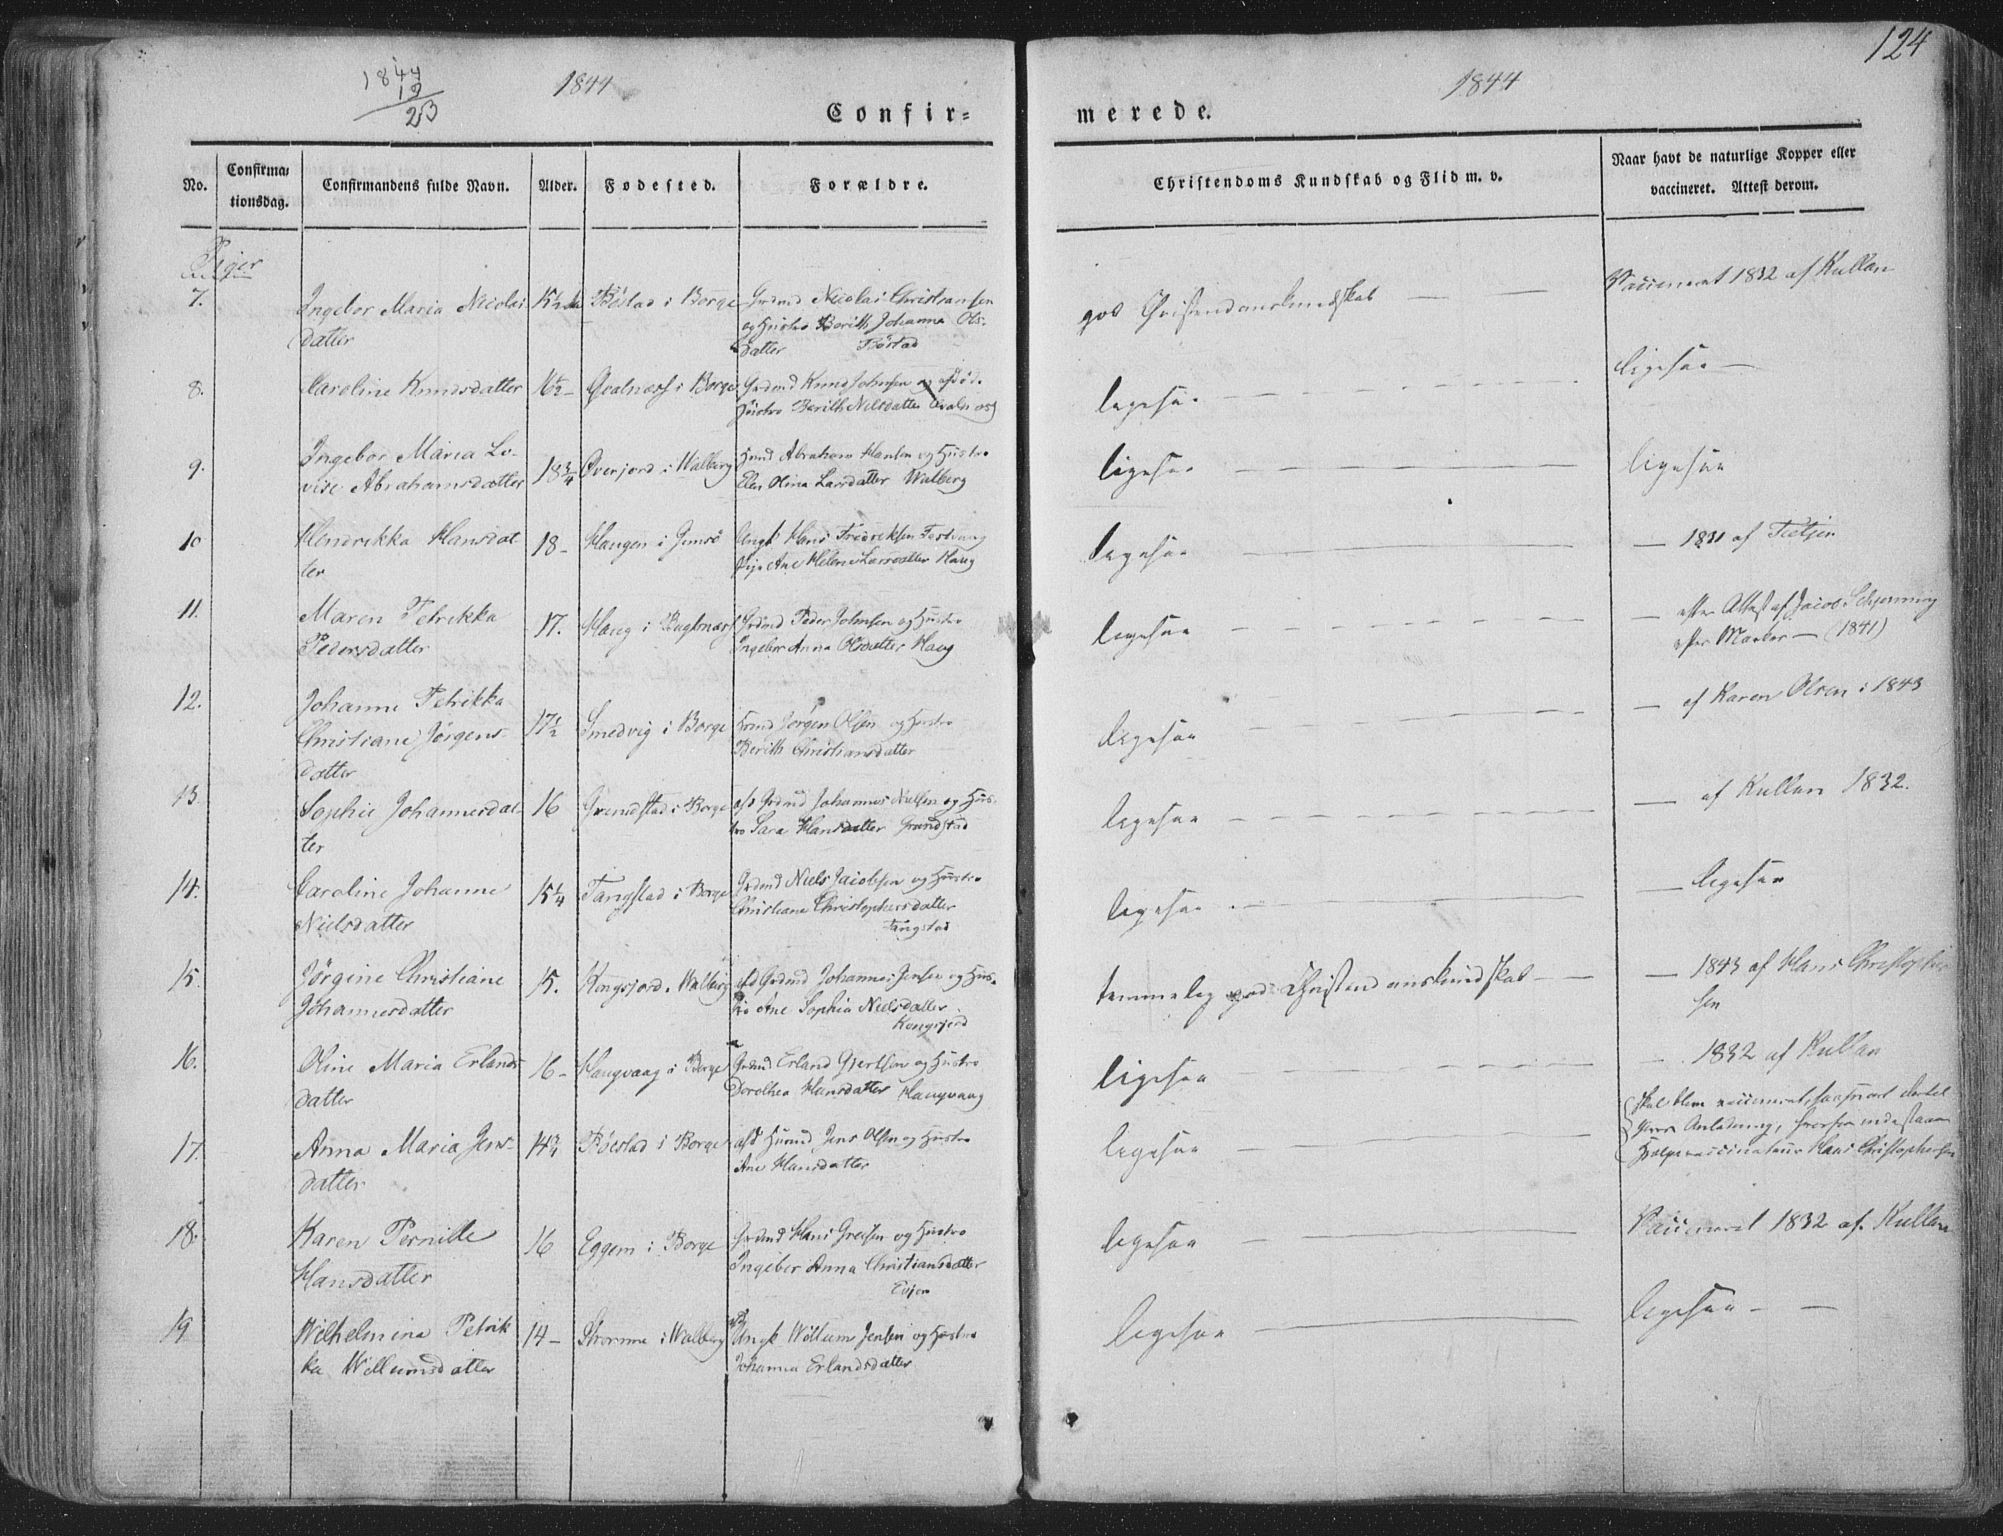 124
1844
19
23
1844
1844
Confir=
merede.
No.
Confirma-
tionsdag.
Confirmandens fulde Navn.
Alder.
Fødested.
Forældre.
Christendoms Kundskab og Flid m. v.
Naar havt de naturlige Kopper eller
vaccineret. Attest derom.
Piger
7.
Ingebor Maria Nicolai
datter
15½
Bøstad i Borge
Grdmd Nicolai Christiansen
og Hustro Berith Johanna Ols-
datter Bøstad
god Christendomskundskab
Vaccineret 1832 af Kullan
8.
Caroline Knudsdatter
16½
Qvalnæss i Borge
Grdmd Knud Johnsen og afdøde
Hustro Berith Nilsdatter
ligesaa
ligesaa
9.
Ingebor Maria Lo-
vise Abrahamsdatter
18¾
Øverjord i Walberg
Hmd Abraham Hansen og Hustro
Elen Olina Larsdatter Walberg
ligesaa
ligesaa
10
Hendrikka Hansdat
ter
18
Haugen i Gimsø
Ungk Hans Fredriksen Festvaag
Pige Ane Helene Larsdatter Haug
ligesaa
1831 af Tietjen
11.
Maren Petrikka
Pedersdatter
17.
Haug i Buglnæss
Grdmd Peder Johnsen og Hustro
Ingebor Anna Olsdatter Haug
ligesaa
efter Attest af Jacob Schjerning
efter Mærker (1841)
12.
Johanne Petrikka
Christiane Jørgens-
datter
17½
Smedvig i Borge
Hmd Jørgen Olsen og Hustro
Berith Christiansdatter
ligesaa
af Karen Olsen i 1843
13
Sophie Johannesdat-
ter
16
Grundstad i Borge
afd Grdmd Johannes Nielsen og Hus-
tro Sara Hansdatter Grundstad
ligesaa
af Kullan 1832.
14.
Caroline Johanne
Nielsdatter
15¼
Tangstad i Borge
Grdmd Niels Jacobsen og Hustro
Christiane Christophersdatter
Tangstad
ligesaa
ligesaa
15.
Jørgine Christiane
Johannesdatter
15.
Kongsjord i Walberg
afd Grdmd Johannes Jensen og Hus-
tro Ane Sophia Nielsdatter
Kongsjord
temmelig god Christendomskundskab
1843 af Hans Christopher
sen
16.
Oline Maria Erlands
datter
16
Haugvaag i Borge
Grdmd Erland Gjertsen og Hustro
Dorothea Hansdatter Haugvaag
ligesaa
1832 af Kullan
17.
Anna Maria Jens-
datter
14¾
Bøstad i Borge
afd Huusmd Jens Olsen og Hustro
Ane Hansdatter
ligesaa
skal blive vaccineret, saasnart dertil
gives Anledning, hvorfor indestaaer
Hjelpevaccinateur Hans Christophersen
18.
Karen Pernille
Hansdatter
16
Eggem i Borge
Grdmd Hans Greisen og Hustro
Ingebor Anna Christiansdatter
ligesaa
Vaccineret 1832 af Kullan
19
Wilhelmina Petrik
ka Willumsdatter
14
Strømme i Walberg
Ungk Willum Jensen og Hustro
Johanna Erlandsdatter
ligesaa
ligesaa